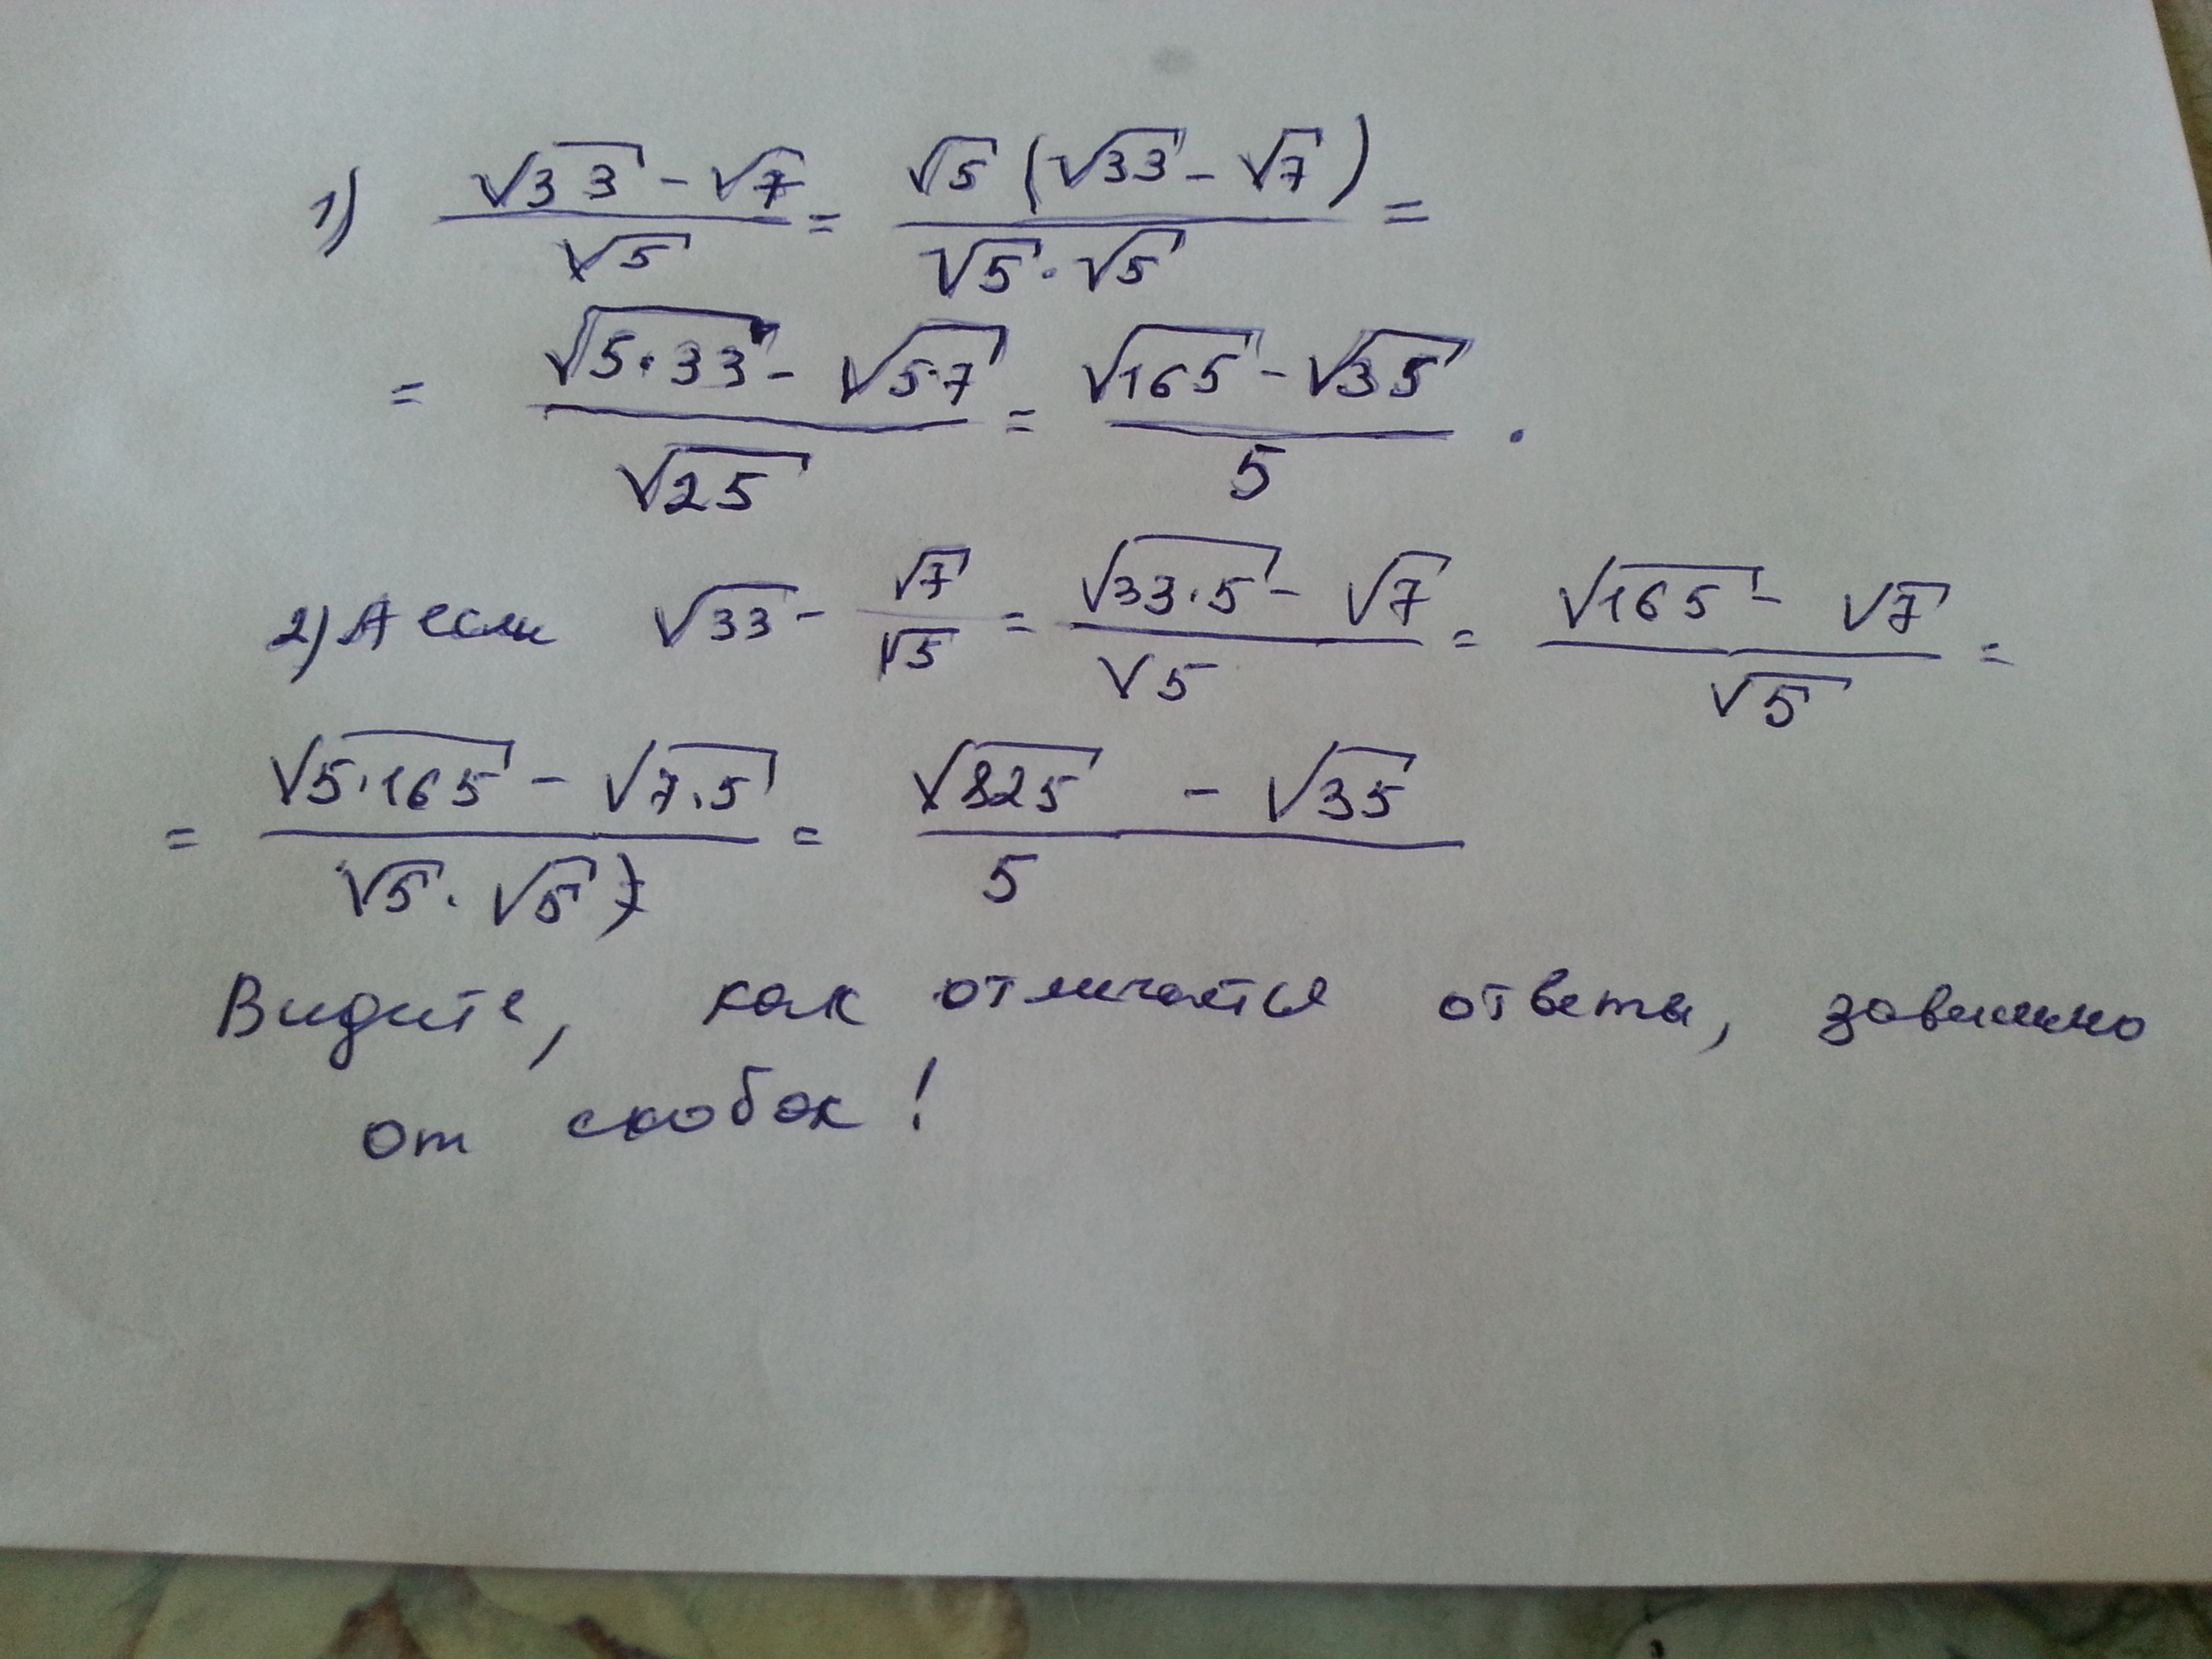 1) (√33 - √7)/√5 = √5(√33 - √7)/(√5·√5) =
= (√5·33 - √5·7)/√25 = (√165 - √35)/5 .
2) А если √33 - √7/√5 = (√33·5 - √7)/√5 = (√165 - √7)/√5 =
= (√5·165 - √7·5)/(√5·√5) = (√825 - √35)/5
Видите, как отличаются ответы, зависимо
от скобок!